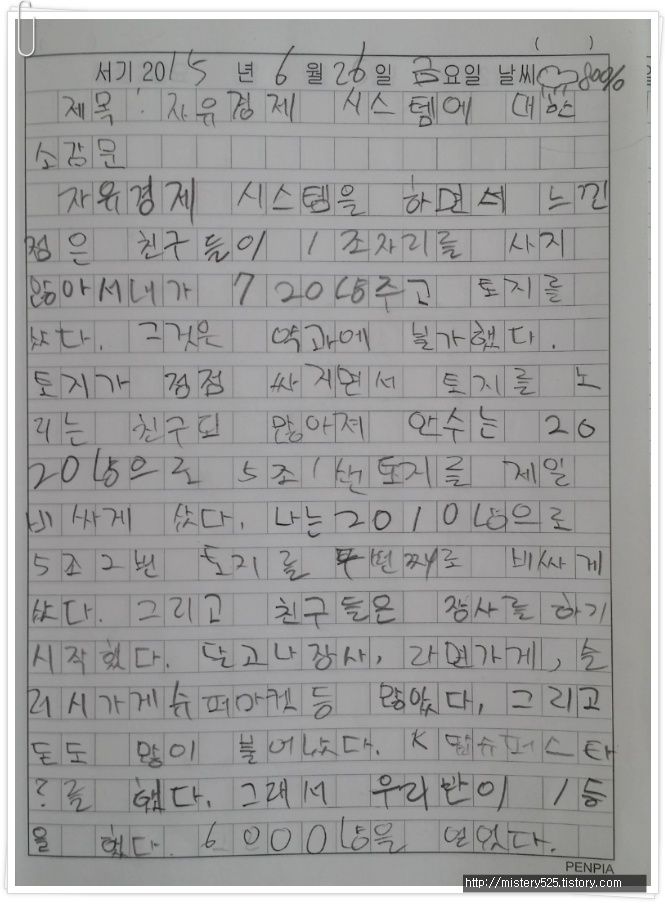 ( )
서기 2015 년 6 월 26 일 금요일 날씨 80%
제목 : 자유경제 시스템에 대한
소감문
자유경제 시스템을 하면서 느낀
점은 친구들이 1조자리를 사지
않아서 내가 720냥주고 토지를
샀다. 그것은 역과에 불가했다.
토지가 점점 싸지면서 토지를 노
리는 친구되 많아져 안수는 20
20냥으로 5조1번토지를 제일
비싸게 샀다. 나는 2010냥으로
5조2번 토지를 번째로 비싸게
샀다. 그리고 친구들은 장사를 하기
시작했다. 달고나장사, 라면가게, 슬
러시가게 슈퍼마켓등 많았다, 그리고
돈도 많이 불어났다. K 팝슈퍼스타
?를 했다. 그래서 우리반이 1등
을 했다. 6000냥을 얻었다.
PENPIA
http://mistery525.tistory.com